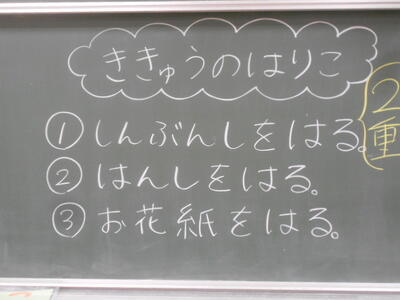 ききゅうのはりこ
①しんぶんしをはる。
②はんしをはる。
③お花紙をはる。
2
重